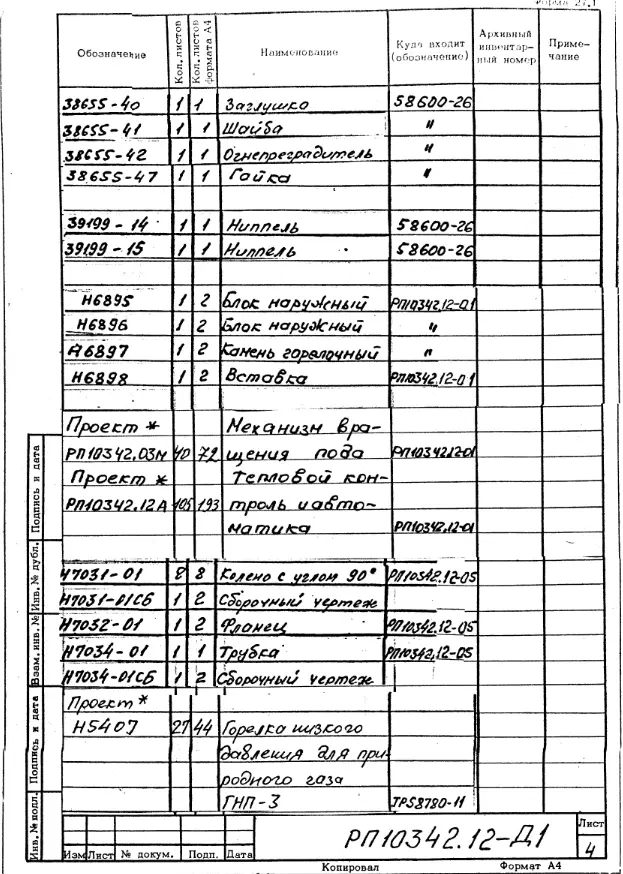 Форма 27.1
Обозначение Кол. листов Кол. листов формата А4 Наименование Куда входит (обозначение) Архивный инвентарный номер Примечание
38655-40 1 1 Заглушка 58600-26
38655-41 1 1 Шайба "
38655-42 1 1 Огнепреградитель "
38655-47 1 1 Гайка "
39199-14 1 1 Ниппель 58600-26
39199-15 1 1 Ниппель 58600-26
Н6895 1 2 Блок наружный РП10342.12-01
Н6896 1 2 Блок наружный "
Н6897 1 2 Камень горелочный "
Н6898 1 2 Вставка РП10342.12-01
Проект * Механизм вра-
РП10342.03М 40 72 щения пода РП10342.12-01
Проект * Тепловой кон-
РП10342.12А 105 193 троль и авто-
матика РП10342.12-01
Н7031-01 8 8 Колено с углом 90° РП10342.12-05
Н7031-01СБ 1 2 Сборочный чертеж
Н7032-01 1 2 Фланец РП10342.12-05
Н7034-01 1 1 Трубка РП10342.12-05
Н7034-01СБ 1 2 Сборочный чертеж
Проект *
Н5407 27 44 Горелка низкого
давления для при-
родного газа
ГНП-3 ТР58780-11
Инв. № подл. Подпись и дата Взам. инв. № Инв. № дубл. Подпись и дата
РП10342.12-Д1
Лист
4
Изм Лист № докум. Подп. Дата
Копировал Формат А4